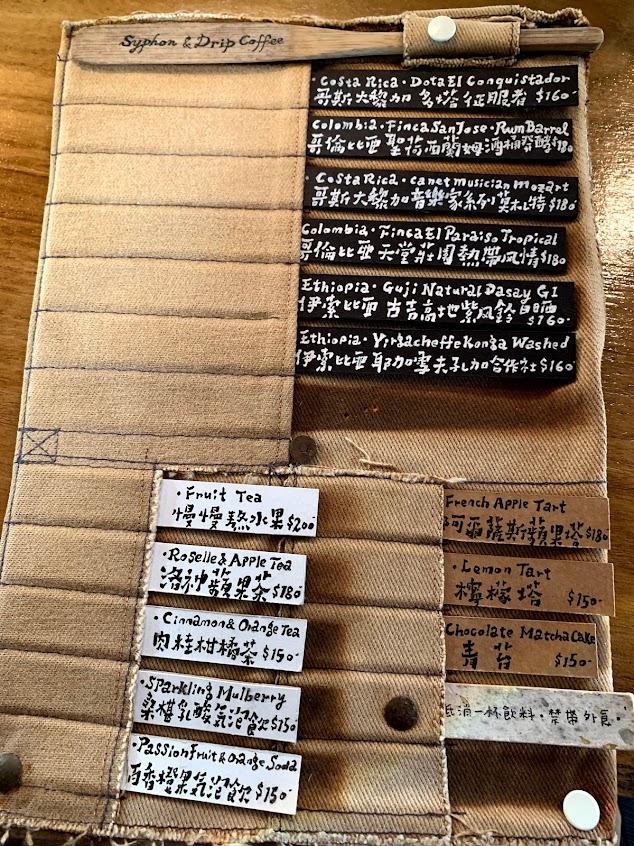 Syphon & Drip Coffee
· Costa Rica · Dota El Conquistador
哥斯大黎加 多塔征服者 $160-
Colombia · Finca San Jose · Rum Barrel
哥倫比亞 聖荷西蘭姆酒桶發酵$180
· Costa Rica · canet musician mozart
哥斯大黎加音樂家系列莫札特 $180
Colombia · Finca El Paraiso Tropical
哥倫比亞 天堂莊園熱帶風情$180
Ethiopia · Guji Natural Dasay G1
伊索比亞 古吉高地紫風鈴 日晒
$160-
Ethiopia · Yirgacheffe Konga Washed
伊索比亞 耶加雪夫孔加合作社 $160
· Fruit Tea
慢慢熬水果$200-
· Roselle & Apple Tea
洛神蘋果茶$180
· Cinnamon & Orange Tea
肉桂柑橘茶 $150-
· Sparkling Mulberry
桑椹乳酸氣泡飲$150
· Passion fruit & Orange Soda
百香橙果氣泡飲 $150
French Apple Tart
阿爾薩斯蘋果塔$180
· Lemon Tart
檸檬塔 $150-
Chocolate Matcha Cake
青苔 $150-
低消一杯飲料·禁帶外食·